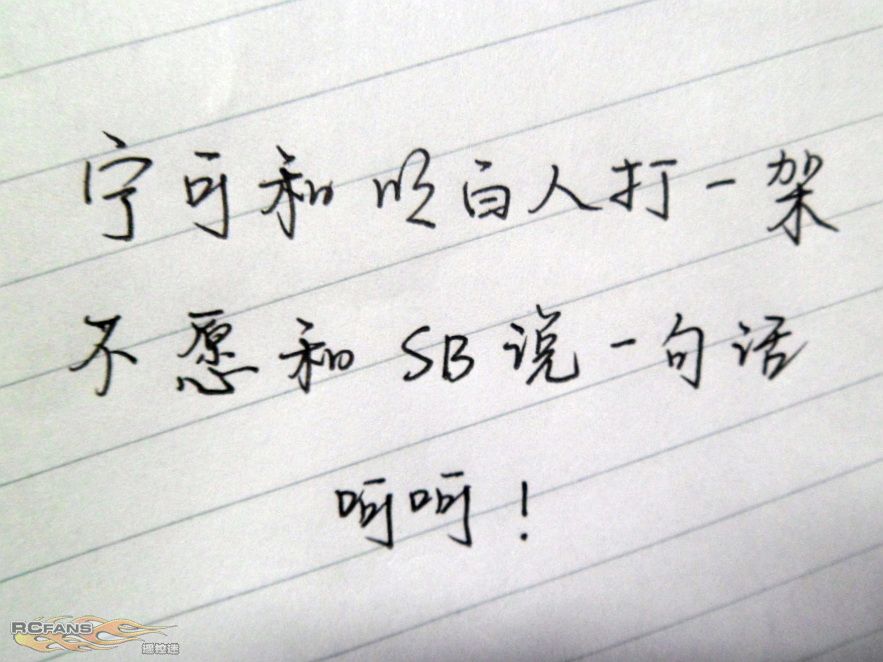 宁可和明白人打一架
不愿和SB说一句话
呵呵！
RCFANS
遥控迷